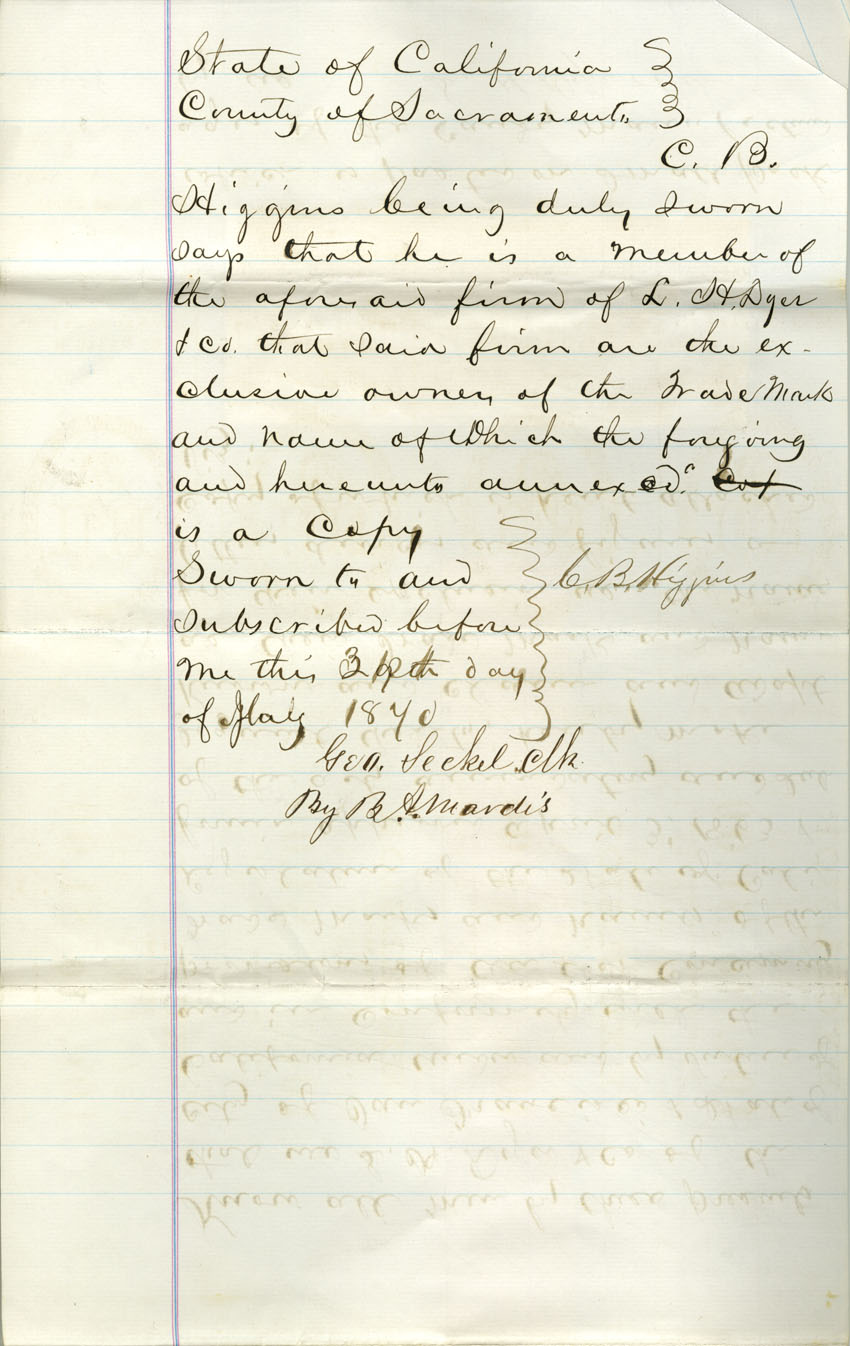 State of California
County of Sacramento
C. B.
Higgins being duly sworn
says that he is a member of
the aforesaid firm of L. H. Dyer
& co. that said firm are the ex-
clusive owners of the Trade Mark
and name of which the foregoing
and hereunto annexed
is a Copy
Sworn to and
subscribed before
me this day
of May 1870
C. B. Higgins
Geo. Seckel Clk
By B. A. Mardis